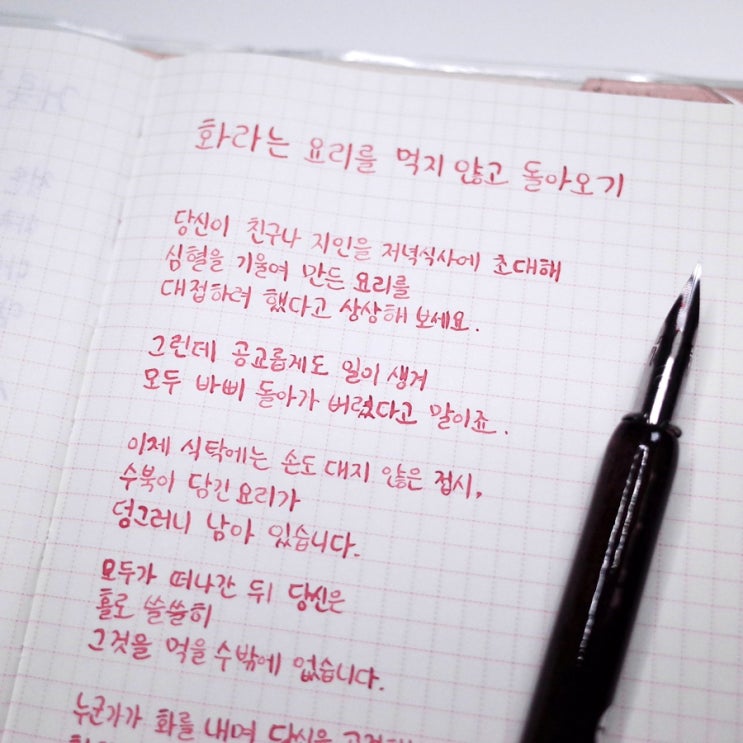 화라는 요리를 먹지 않고 돌아오기
당신이 친구나 지인을 저녁식사에 초대해
심혈을 기울여 만든 요리를
대접하려 했다고 상상해 보세요.
그런데 공교롭게도 일이 생겨
모두 바삐 돌아가 버렸다고 말이죠.
이제 식탁에는 손도 대지 않은 접시,
수북이 담긴 요리가
덩그러니 남아 있습니다.
모두가 떠나간 뒤 당신은
홀로 쓸쓸히
그것을 먹을 수밖에 없습니다.
누군가가 화를 내며 당신을